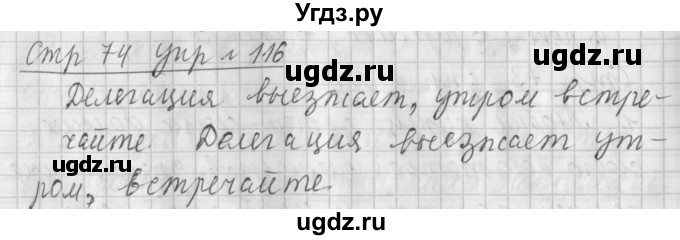 Угдз.ру
Стр 74 упр № 116
ugdz.ru
ugdz.ru
Делегация выезжает, утром встре-
чайте. Делегация выезжает ут-
ugdz.ru
ugdz.ru
ром, встречайте.
ugdz.ru
ugdz.ru